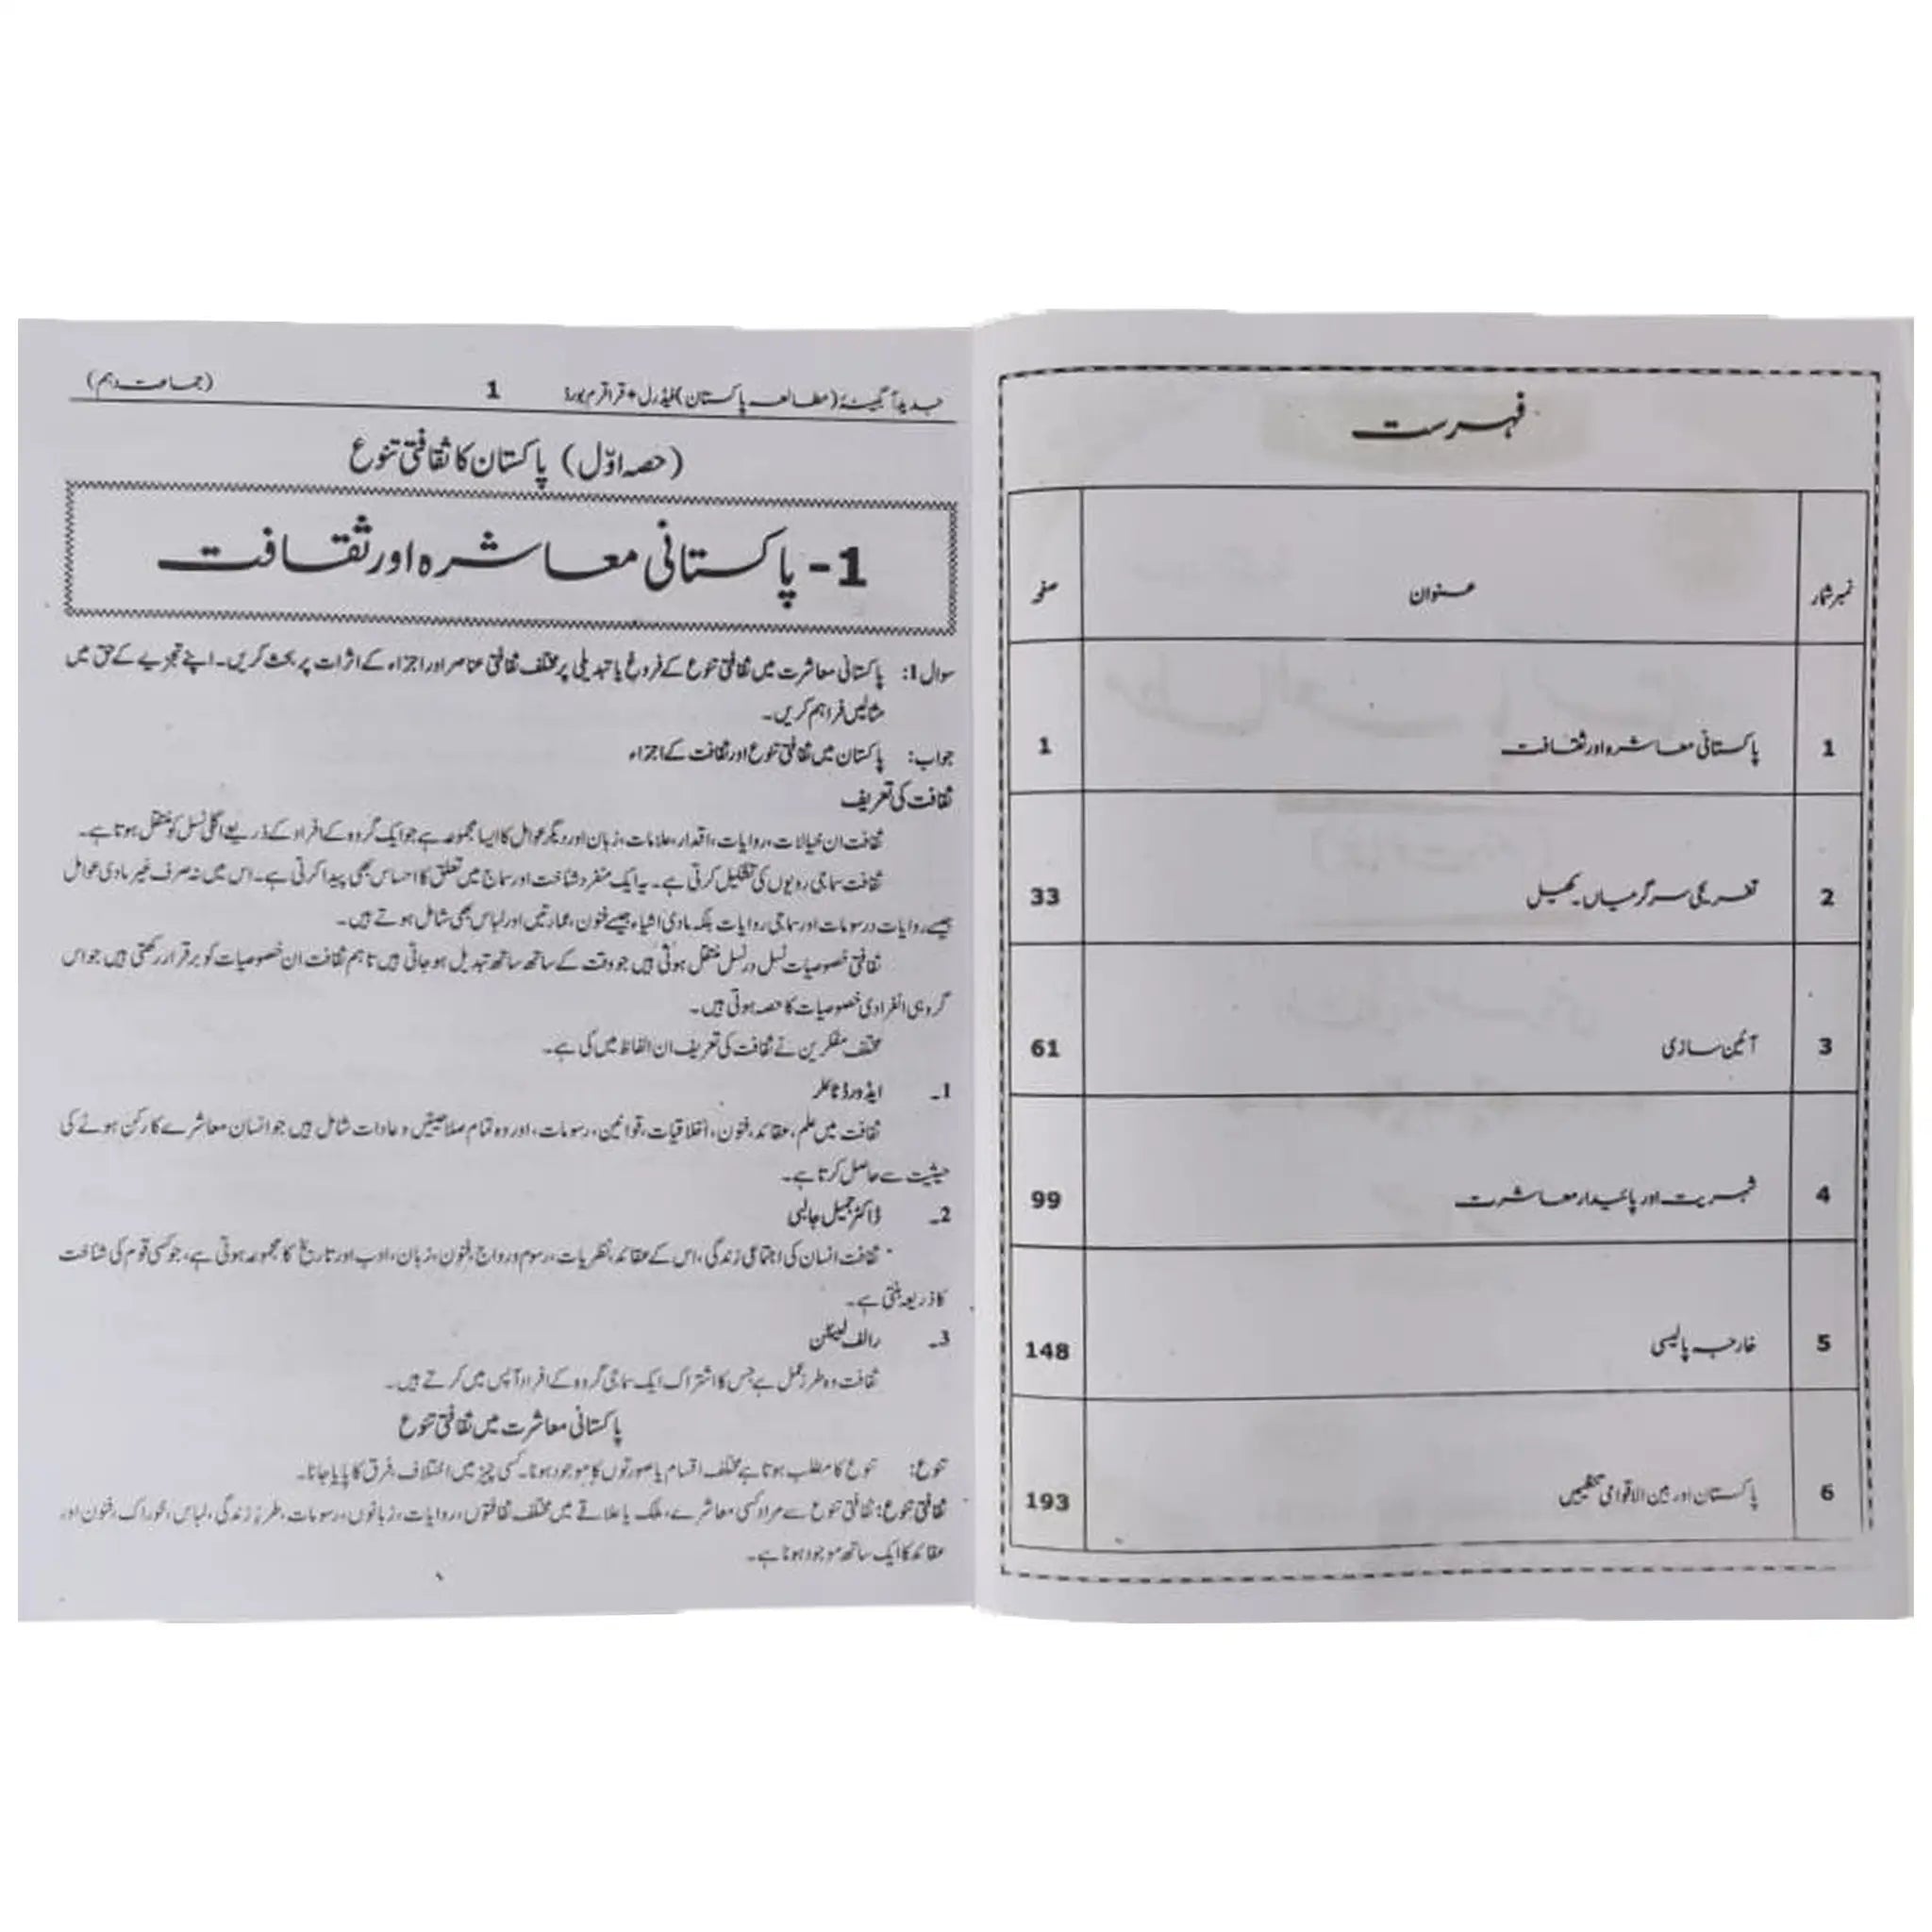 فہرست
نمبر شمار عنوان صفحہ
1 پاکستانی معاشرہ اور ثقافت 1
2 تفریحی سرگرمیاں، کھیل 33
3 آئین سازی 61
4 شہریت اور پائیدار معاشرت 99
5 خارجہ پالیسی 148
6 پاکستان اور بین الاقوامی تنظیمیں 193
جدید آئینہ (مطالعہ پاکستان) فیڈرل + قراقرم بورڈ 1 (جماعت دہم)
(حصہ اوّل) پاکستان کا ثقافتی تنوع
1- پاکستانی معاشرہ اور ثقافت
سوال 1: پاکستانی معاشرت میں ثقافتی تنوع کے فروغ یا تبدیلی پر مختلف ثقافتی عناصر اور اجزاء کے اثرات پر بحث کریں۔ اپنے تجزیے کے حق میں
مثالیں فراہم کریں۔
جواب: پاکستان میں ثقافتی تنوع اور ثقافت کے اجزاء
ثقافت کی تعریف
ثقافت ان خیالات، روایات، اقدار، علامات، زبان اور دیگر عوامل کا ایسا مجموعہ ہے جو ایک گروہ کے افراد کے ذریعے اگلی نسل کو منتقل ہوتا ہے۔
ثقافت سماجی رویوں کی تشکیل کرتی ہے۔ یہ ایک منفرد شناخت اور سماج میں تعلق کا احساس بھی پیدا کرتی ہے۔ اس میں نہ صرف غیر مادی عوامل
جیسے روایات و رسومات اور سماجی روایات بلکہ مادی اشیاء جیسے فنون، عمارتیں اور لباس بھی شامل ہوتے ہیں۔
ثقافتی خصوصیات نسل در نسل منتقل ہوتی ہیں جو وقت کے ساتھ ساتھ تبدیل ہو جاتی ہیں تاہم ثقافت ان خصوصیات کو برقرار رکھتی ہیں جو اس
گروہی انفرادی خصوصیات کا حصہ ہوتی ہیں۔
مختلف مفکرین نے ثقافت کی تعریف ان الفاظ میں کی ہے۔
1۔ ایڈورڈ ٹائلر
ثقافت میں علم، عقائد، فنون، اخلاقیات، قوانین، رسومات، اور وہ تمام صلاحیتیں و عادات شامل ہیں جو انسان معاشرے کا رکن ہونے کی
حیثیت سے حاصل کرتا ہے۔
2۔ ڈاکٹر جمیل جالبی
ثقافت انسان کی اجتماعی زندگی، اس کے عقائد، نظریات، رسوم و رواج، فنون، زبان، ادب اور تاریخ کا مجموعہ ہوتی ہے، جو کسی قوم کی شناخت
کا ذریعہ بنتی ہے۔
3۔ رالف لنٹن
ثقافت وہ طرز عمل ہے جس کا اشتراک ایک سماجی گروہ کے افراد آپس میں کرتے ہیں۔
پاکستانی معاشرت میں ثقافتی تنوع
تنوع: تنوع کا مطلب ہوتا ہے مختلف اقسام یا صورتوں کا موجود ہونا۔ کسی چیز میں اختلاف، فرق کا پایا جانا۔
ثقافتی تنوع: ثقافتی تنوع سے مراد کسی معاشرے، ملک یا علاقے میں مختلف ثقافتوں، روایات، زبانوں، رسومات، طرز زندگی، لباس، خوراک، فنون اور
عقائد کا ایک ساتھ موجود ہونا ہے۔